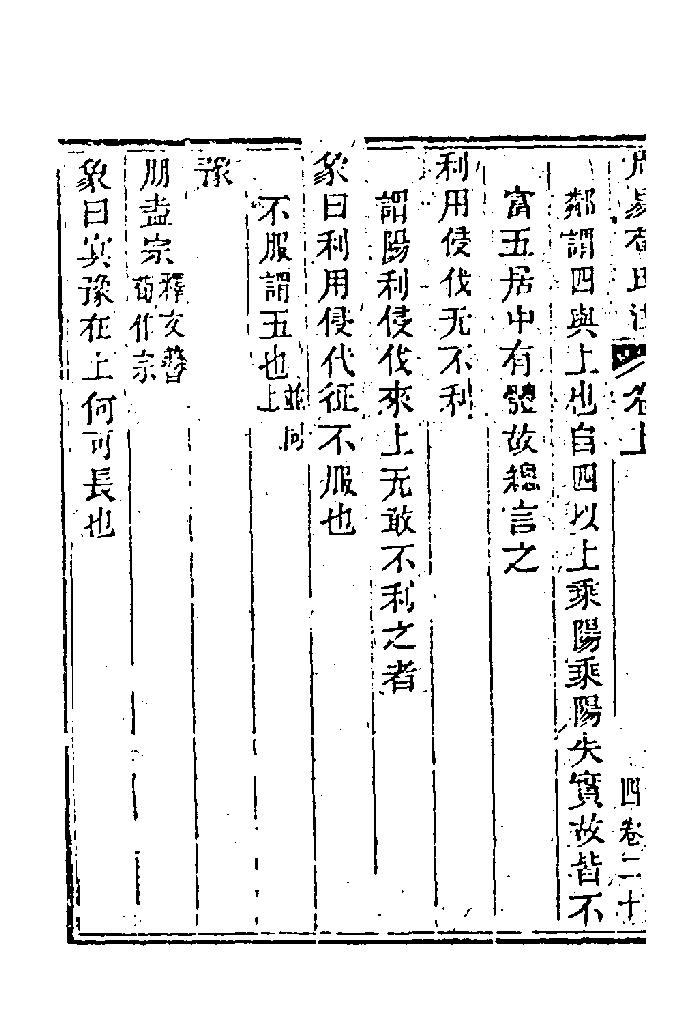 周易荀氏注 卷上 四卷二十
鄰謂四與上也自四以上乘陽乘陽失實故皆不
富五居中有體故總言之
利用侵伐无不利
謂陽利侵伐來上无敢不利之者
象曰利用侵伐征不服也
不服謂五也並同上
豫
朋盍宗釋文簪荀作宗
象曰冥豫在上何可長也